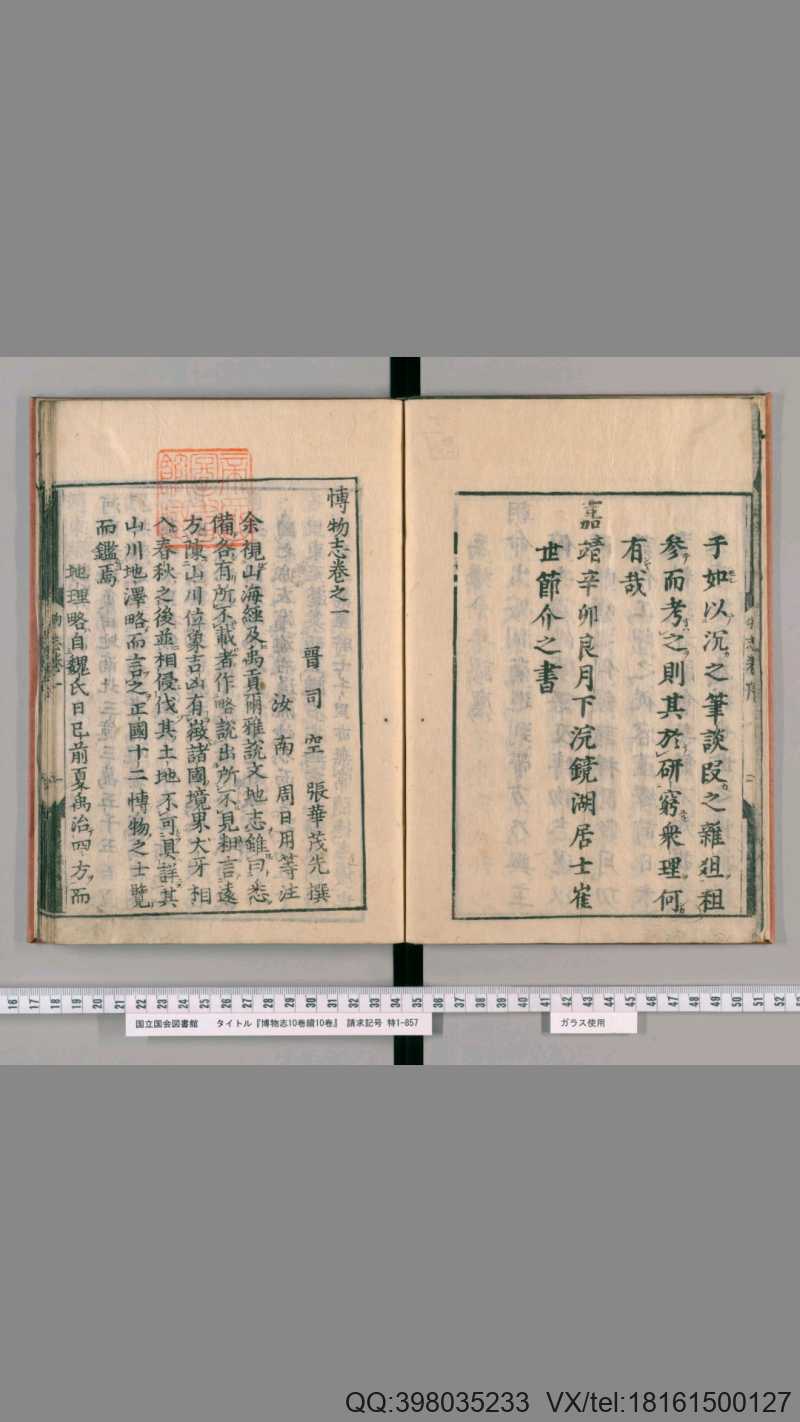 于如以沉之筆談段之雜俎租
參而考之則其於研窮衆理何
有哉
嘉靖辛卯良月下浣鏡湖居士崔
世節介之書
博物志卷之一
晉司空 張華茂先撰
汝南 周日用等注
余視山海經及禹貢爾雅說文地志雖曰悉
備各有所不載者作略說出所不見粗言遠
方陳山川位象吉凶有徵諸國境界犬牙相
入春秋之後並相侵伐其土地不可具詳其
山川地澤略而言之正國十二博物之士覽
而鑑焉
地理略自魏氏日已前夏禹治四方而
16 17 18 19 20 21 22 23 24 25 26 27 28 29 30 31 32 33 34 35 36 37 38 39 40 41 42 43 44 45 46 47 48 49 50 51 52 53
国立国会図書館 タイトル『博物志10巻續10巻』 請求記号 特1-857
ガラス使用
QQ:398035233 VX/tel:18161500127